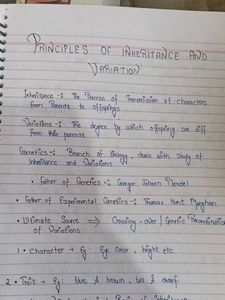 PRINCIPLES OF INHERITANCE AND
VARIATION
Inheritance :- The Process of Transmission of characters
from Parents to offsprings
Variations :- The degree by which offspring are diff
from their parents.
Genetics :- Branch of Biology, deals with study of
Inheritance and Variations
• Father of Genetics :- Gregor Johann Mendel
• Father of Experimental Genetics :- Thomas Hunt Morghan
• Ultimate Source ⇒ Crossing-over / Genetic Recombination
of Variations
1 • Character → Eg: Eye color, height etc
2 • Trait → Eg: blue & brown, tall & dwarf.